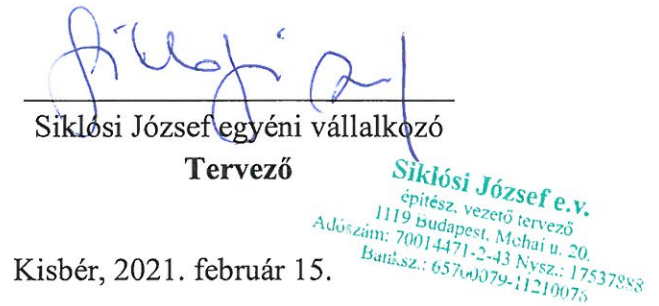 Siklósi József egyéni vállalkozó
Tervező
Siklósi József e.v.
építész, vezető tervező
1119 Budapest, Mohai u. 20.
Adószám: 70014471-2-43 Nysz.: 17537888
Banksz.: 65700079-11210076
Kisbér, 2021. február 15.